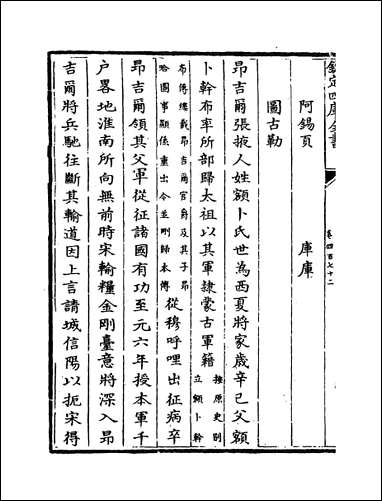 欽定四庫全書
卷四百七十二
阿錫頁　庫庫
圖古勒
昂吉爾張掖人姓額卜氏世為西夏將家歲辛巳父額
卜幹布率所部歸太祖以其軍隸蒙古軍籍按原史別立額卜幹
布傳總載昂吉爾官爵及其子昂哈圖事顯係重出今並刪歸本傳從穆呼哩出征病卒
昂吉爾領其父軍從征諸國有功至元六年授本軍千
户畧地淮南所向無前時宋輸糧金剛臺意將深入昂
吉爾將兵馳往斷其輸道因上言請城信陽以扼宋得